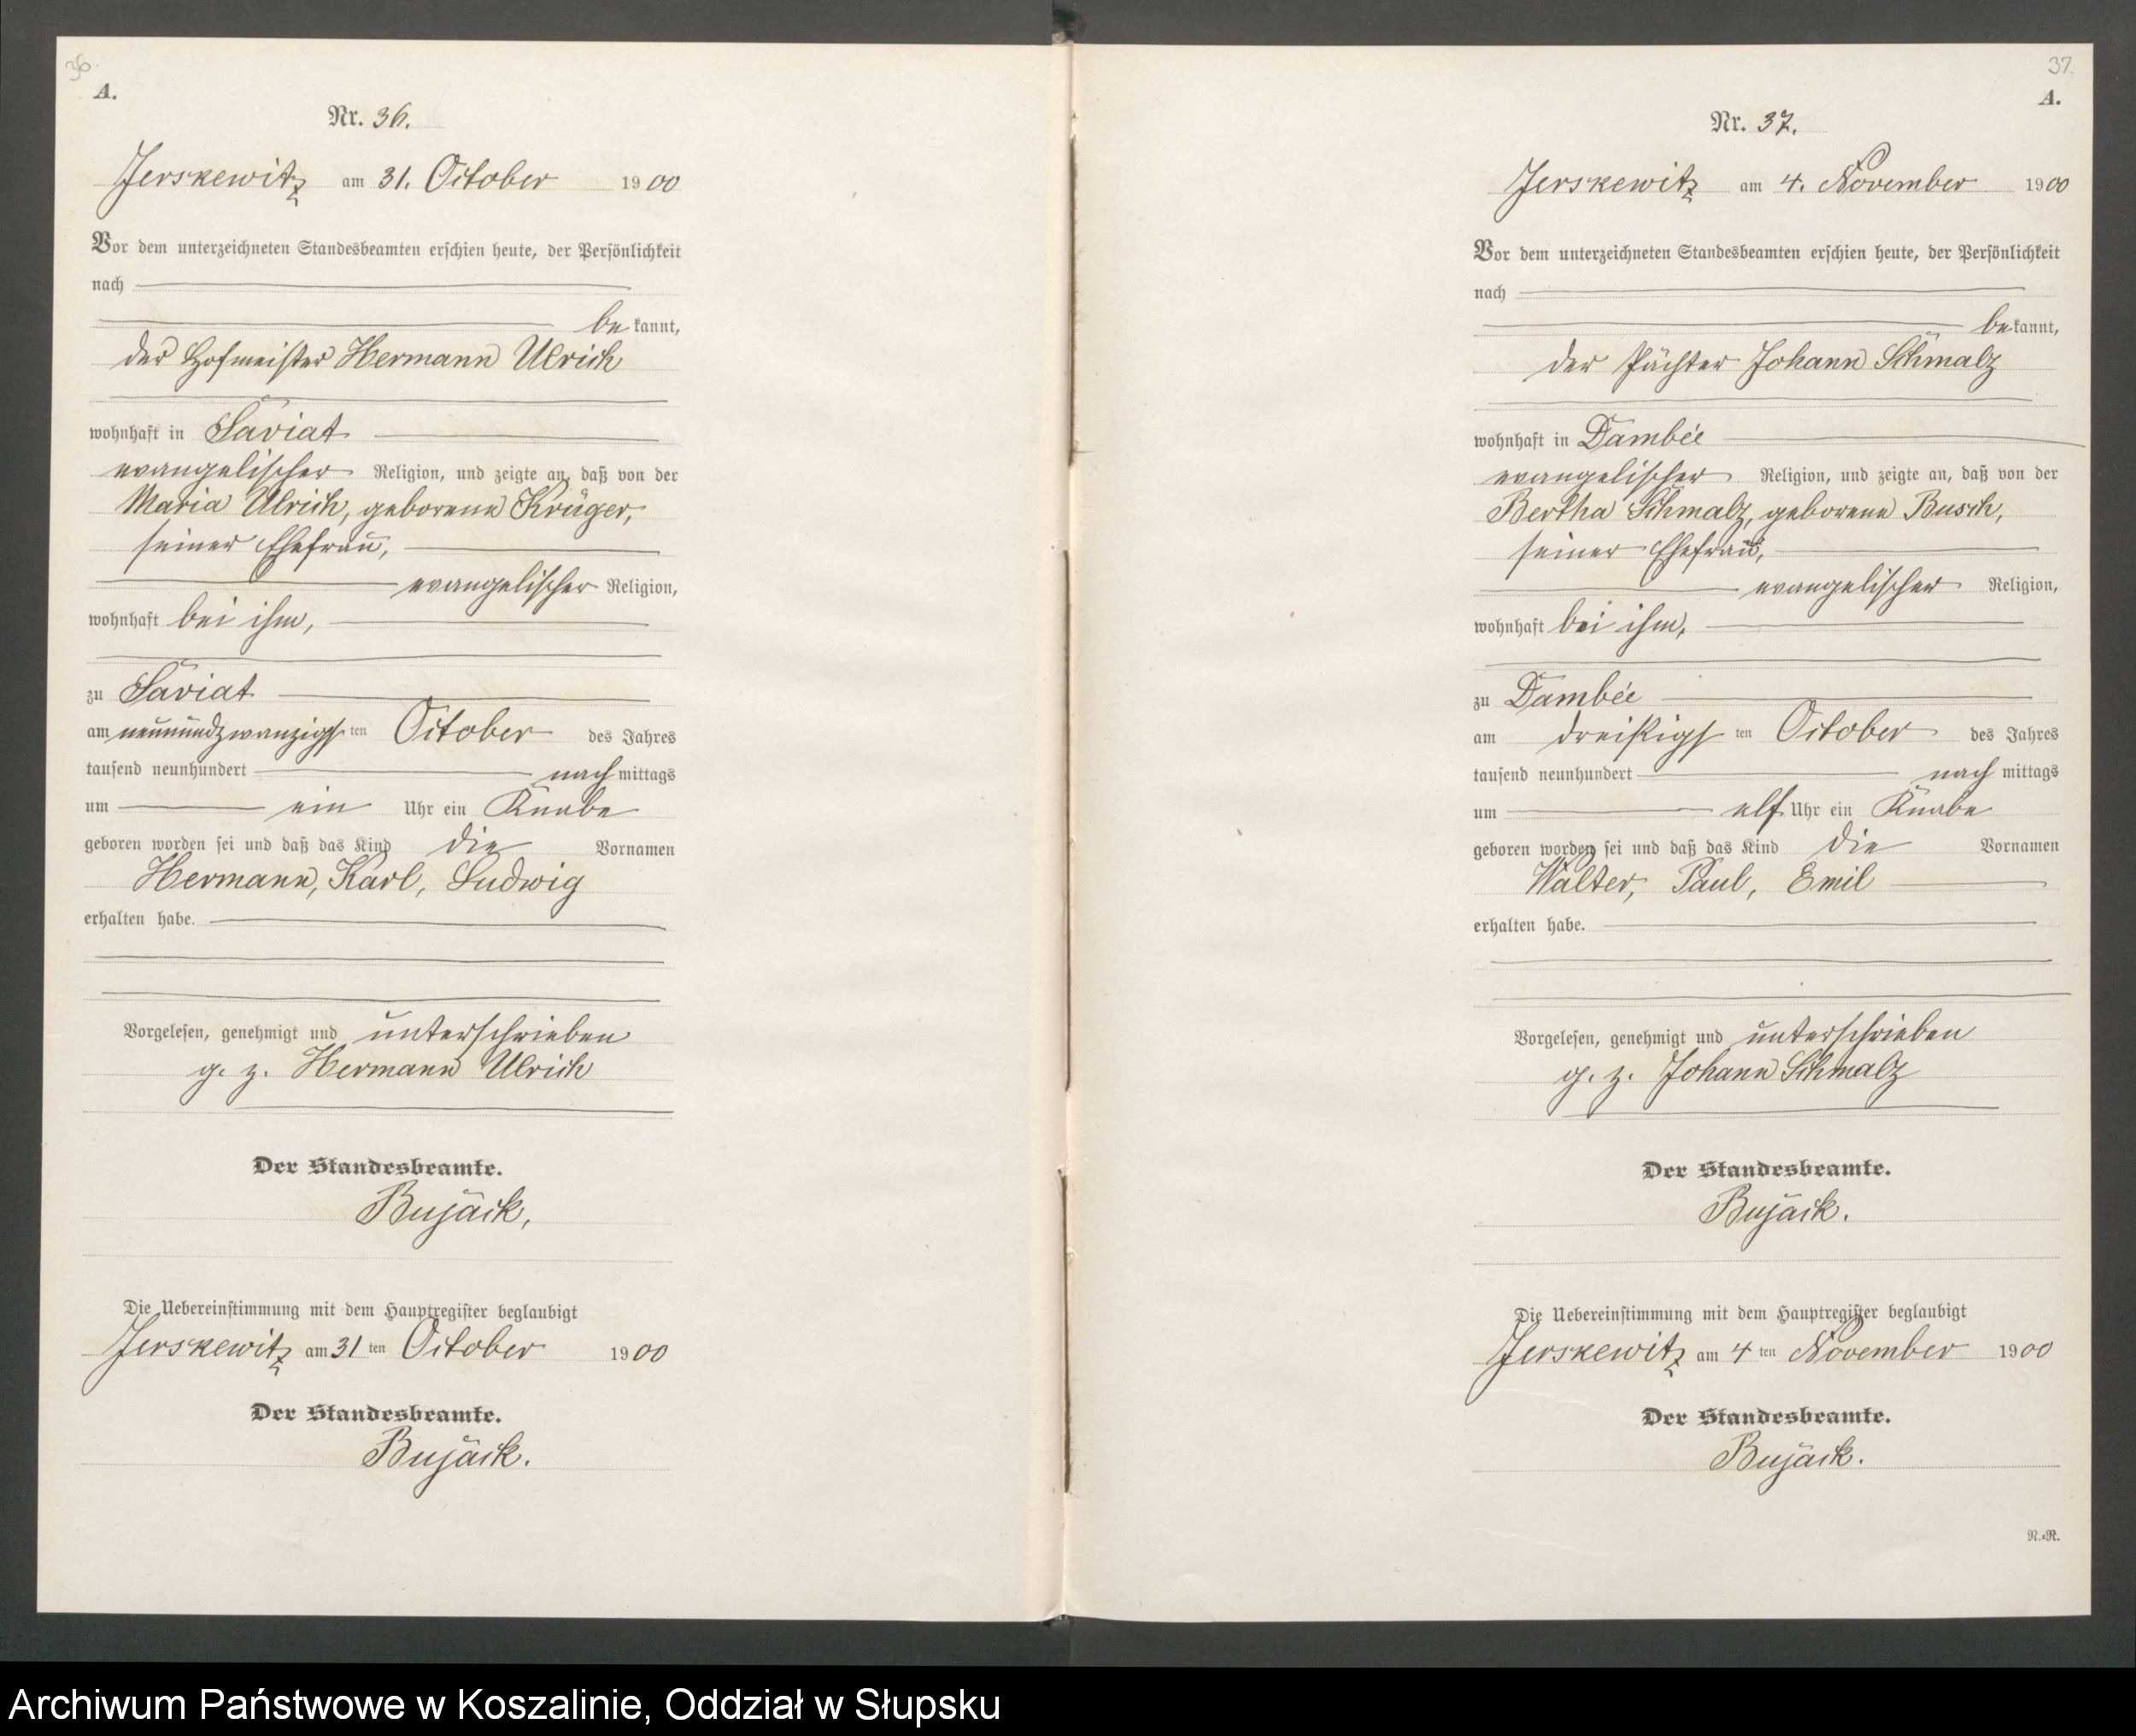 36.
A.
Nr. 36.
Jerskewitz am 31. October 1900
Vor dem unterzeichneten Standesbeamten erschien heute, der Persönlichkeit
nach
bekannt,
der Hofmeister Hermann Ulrich
wohnhaft in Saviat
evangelischer Religion, und zeigte an, daß von der
Maria Ulrich, geborene Krüger,
seiner Ehefrau,
evangelischer Religion,
wohnhaft bei ihm,
zu Saviat
am neunundzwanzigsten October des Jahres
tausend neunhundert nachmittags
um ein Uhr ein Knabe
geboren worden sei und daß das Kind die Vornamen
Hermann, Karl, Ludwig
erhalten habe.
Vorgelesen, genehmigt und unterschrieben
g. z. Hermann Ulrich
Der Standesbeamte.
Bujack,
Die Uebereinstimmung mit dem Hauptregister beglaubigt
Jerskewitz am 31 ten October 1900
Der Standesbeamte.
Bujack.
37.
A.
Nr. 37.
Jerskewitz am 4. November 1900
Vor dem unterzeichneten Standesbeamten erschien heute, der Persönlichkeit
nach
bekannt,
der Pächter Johann Schmalz
wohnhaft in Dambée
evangelischer Religion, und zeigte an, daß von der
Bertha Schmalz, geborene Busch,
seiner Ehefrau,
evangelischer Religion,
wohnhaft bei ihm,
zu Dambée
am dreißigsten October des Jahres
tausend neunhundert nachmittags
um elf Uhr ein Knabe
geboren worden sei und daß das Kind die Vornamen
Walter, Paul, Emil
erhalten habe.
Vorgelesen, genehmigt und unterschrieben
g. z. Johann Schmalz
Der Standesbeamte.
Bujack.
Die Uebereinstimmung mit dem Hauptregister beglaubigt
Jerskewitz am 4 ten November 1900
Der Standesbeamte.
Bujack.
N.=R.
Archiwum Państwowe w Koszalinie, Oddział w Słupsku